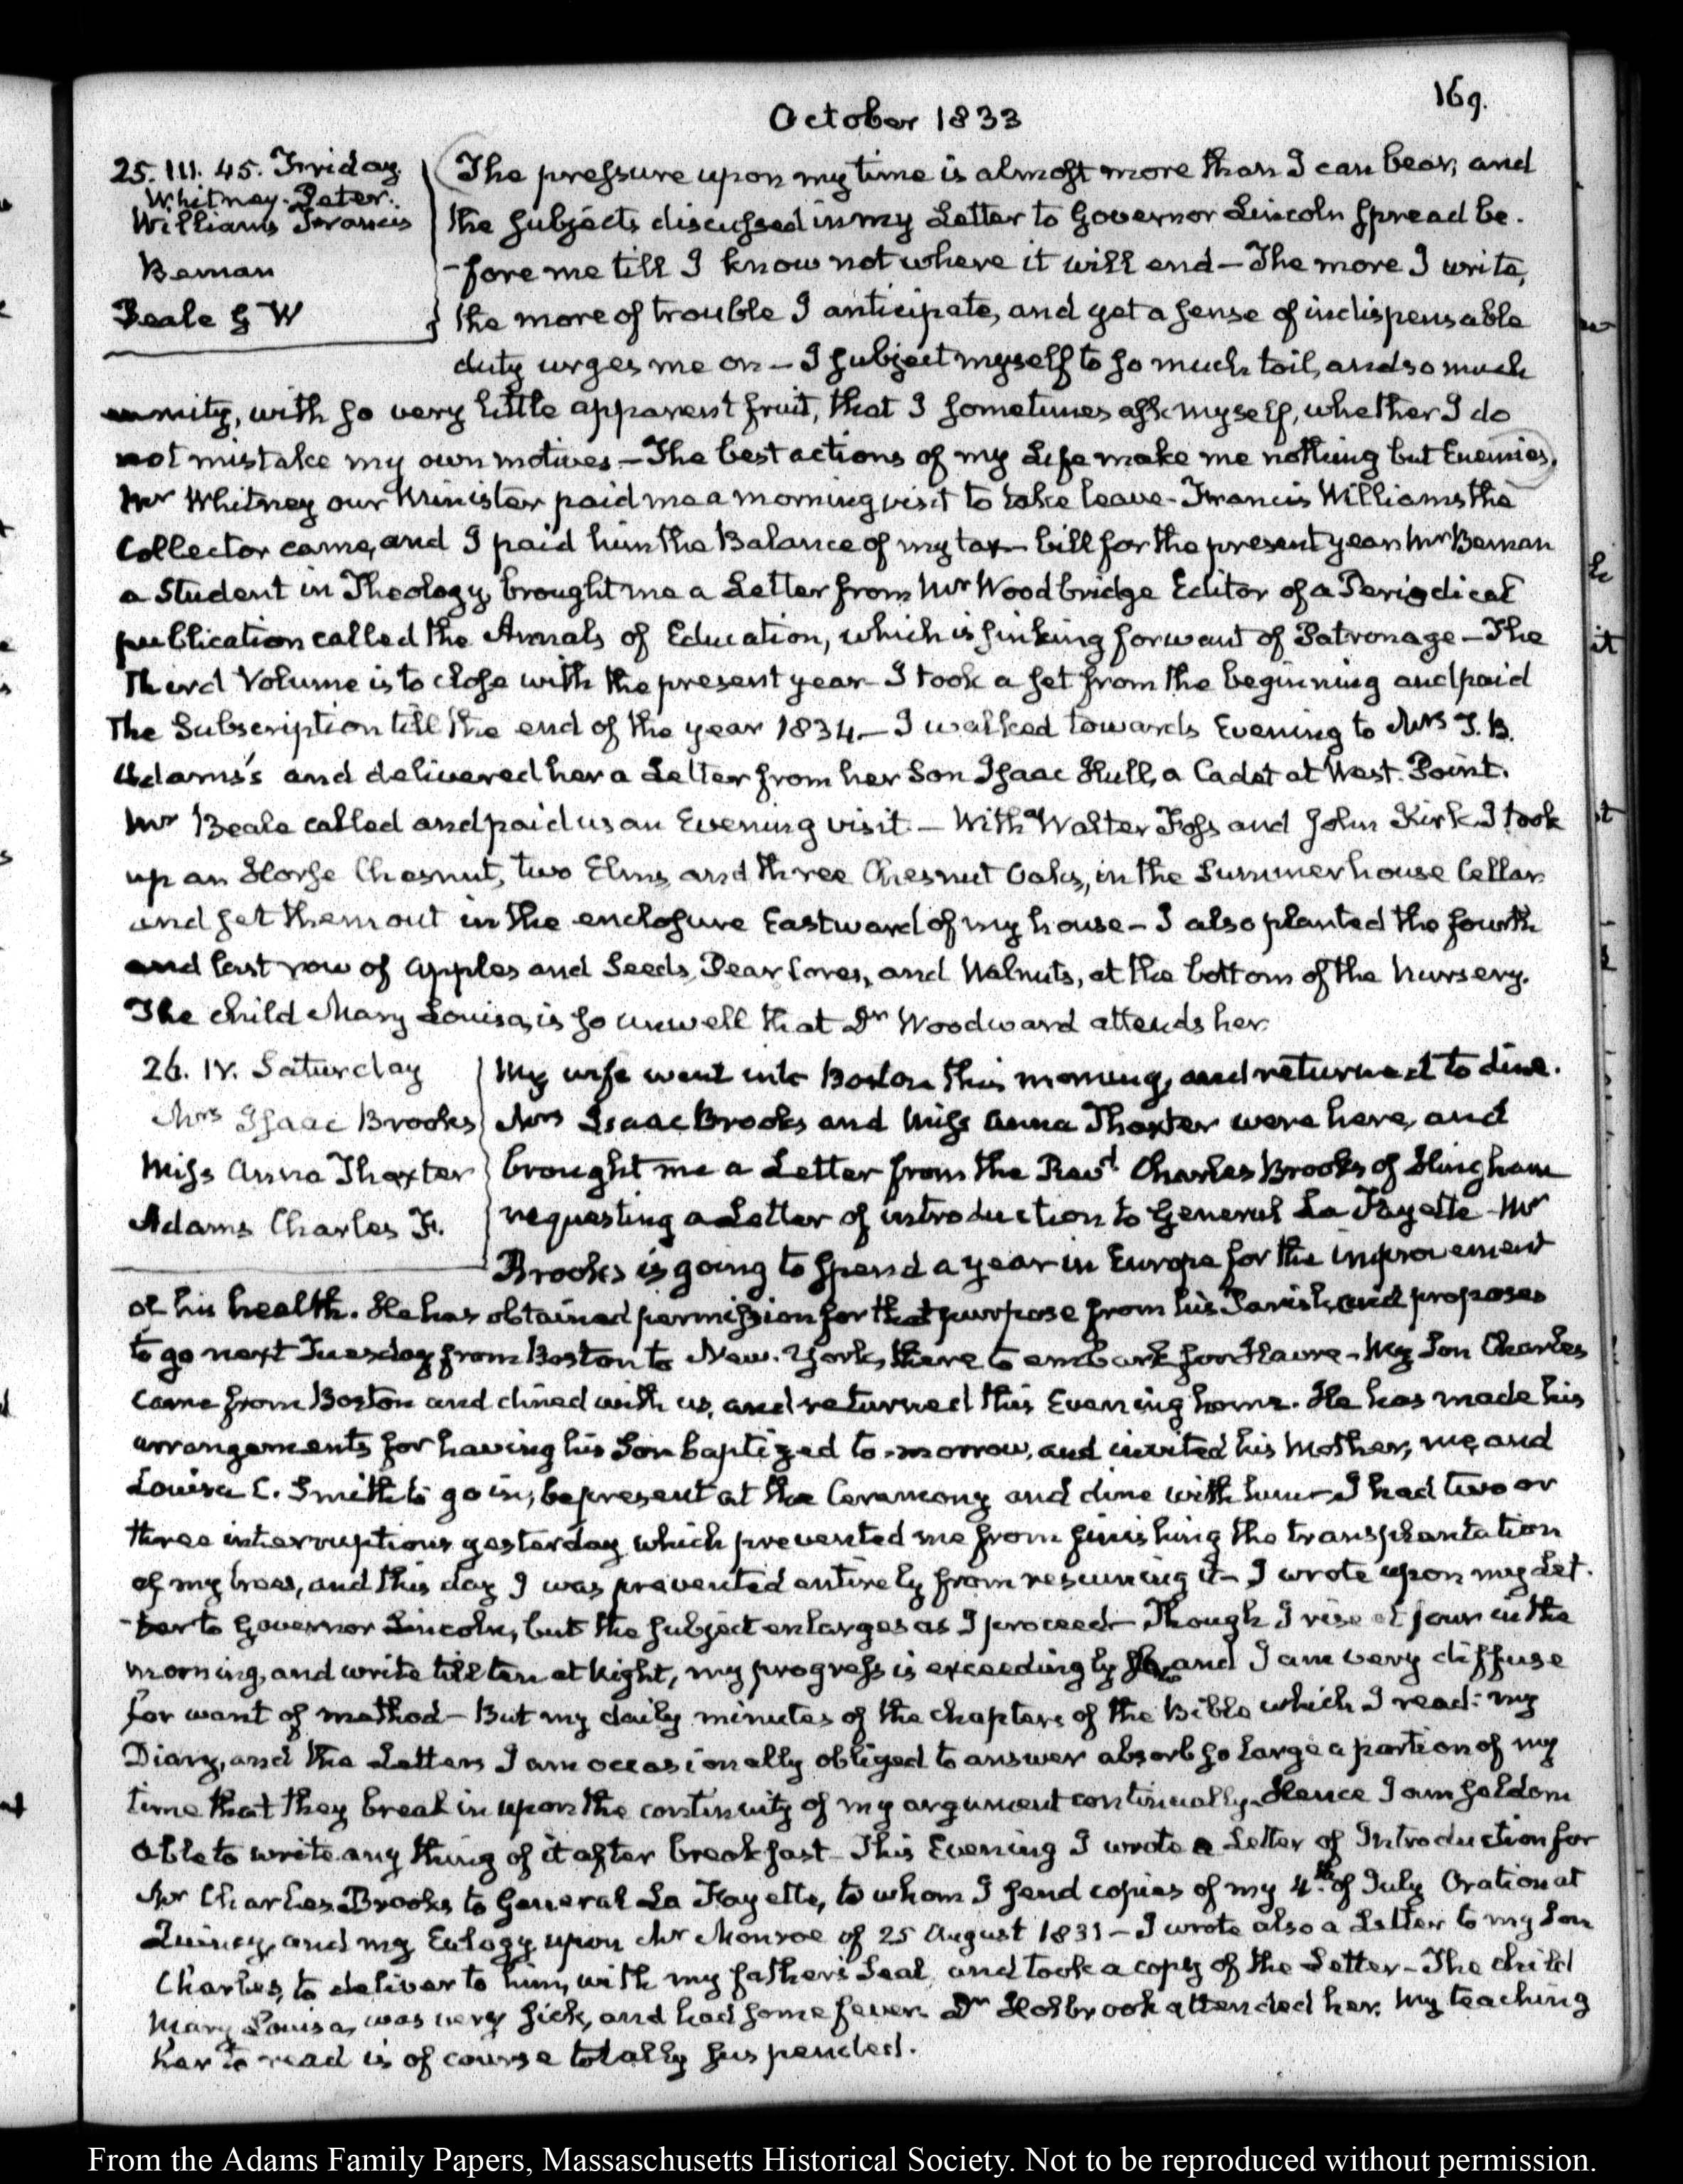 169.
October 1833
25. III. 45. Friday.
Whitney. Peter.
Williams Francis
Beman
Beale G W
The pressure upon my time is almost more than I can bear, and
the subjects discussed in my Letter to Governor Lincoln spread be-
-fore me till I know not where it will end — The more I write,
the more of trouble I anticipate, and yet a sense of indispensable
duty urges me on — I subject myself to so much toil, and so much
enmity, with so very little apparent fruit, that I sometimes ask myself, whether I do
not mistake my own motives — The best actions of my Life make me nothing but Enemies.
Mr Whitney our Minister paid me a morning visit to take leave - Francis Williams the
Collector came, and I paid him the Balance of my tax-bill for the present year Mr Beman
a Student in Theology, brought me a Letter from Mr Woodbridge Editor of a Periodical
publication called the Annals of Education, which is sinking for want of Patronage — The
Third Volume is to close with the present year I took a set from the beginning and paid
the Subscription till the end of the year 1834 — I walked towards Evening to Mrs T. B.
Adams's and delivered her a Letter from her Son Isaac Hull, a Cadet at West-Point.
Mr Beale called and paid us an Evening visit. — With Walter Foss and John Kirk I took
up an Horse Chesnut, two Elms, and three Chesnut Oaks, in the Summerhouse Cellar
and set them out in the enclosure Eastward of my house — I also planted the fourth
and last row of Apples and Seeds, Pear Cores, and Walnuts, at the bottom of the Nursery.
The child Mary Louisa, is so unwell that Dr Woodward attends her.
26. IV. Saturday
Mrs Isaac Brooks
Miss Anna Thaxter
Adams Charles F.
My wife went into Boston this morning, and returned to dine.
Mrs Isaac Brooks and Miss Anna Thaxter were here, and
brought me a Letter from the Revd Charles Brooks of Hingham
requesting a Letter of introduction to General La Fayette - Mr
Brooks is going to spend a year in Europe for the improvement
of his health. He has obtained permission for that purpose from his Parish, and proposes
to go next Tuesday from Boston to New-York, there to embark for Havre - My Son Charles
came from Boston and dined with us, and returned this Evening home. He has made his
arrangements for having his Son baptized to-morrow, and invited his Mother, me, and
Louisa C. Smith to go in, be present at the Ceremony and dine with him — I had two or
three interruptions yesterday which prevented me from finishing the transplantation
of my trees, and this day I was prevented entirely from resuming it — I wrote upon my Let-
-ter to Governor Lincoln, but the subject enlarges as I proceed — Though I rise at four in the
morning, and write till ten at Night, my progress is exceedingly slow, and I am very diffuse
for want of method — But my daily minutes of the chapters of the Bible which I read: my
Diary, and the Letters I am occasionally obliged to answer absorb so large a portion of my
time that they break in upon the continuity of my argument continually. Hence I am seldom
able to write any thing of it after breakfast — This Evening I wrote a Letter of Introduction for
Mr Charles Brooks to General La Fayette, to whom I send copies of my 4th of July Oration at
Quincy, and my Eulogy upon Mr Monroe of 25 August 1831 — I wrote also a Letter to my Son
Charles, to deliver to him, with my father's Seal, and took a copy of the Letter — The child
Mary Louisa, was very sick, and had some fever. Dr Holbrook attended her. My teaching
her to read is of course totally suspended.
From the Adams Family Papers, Massachusetts Historical Society. Not to be reproduced without permission.